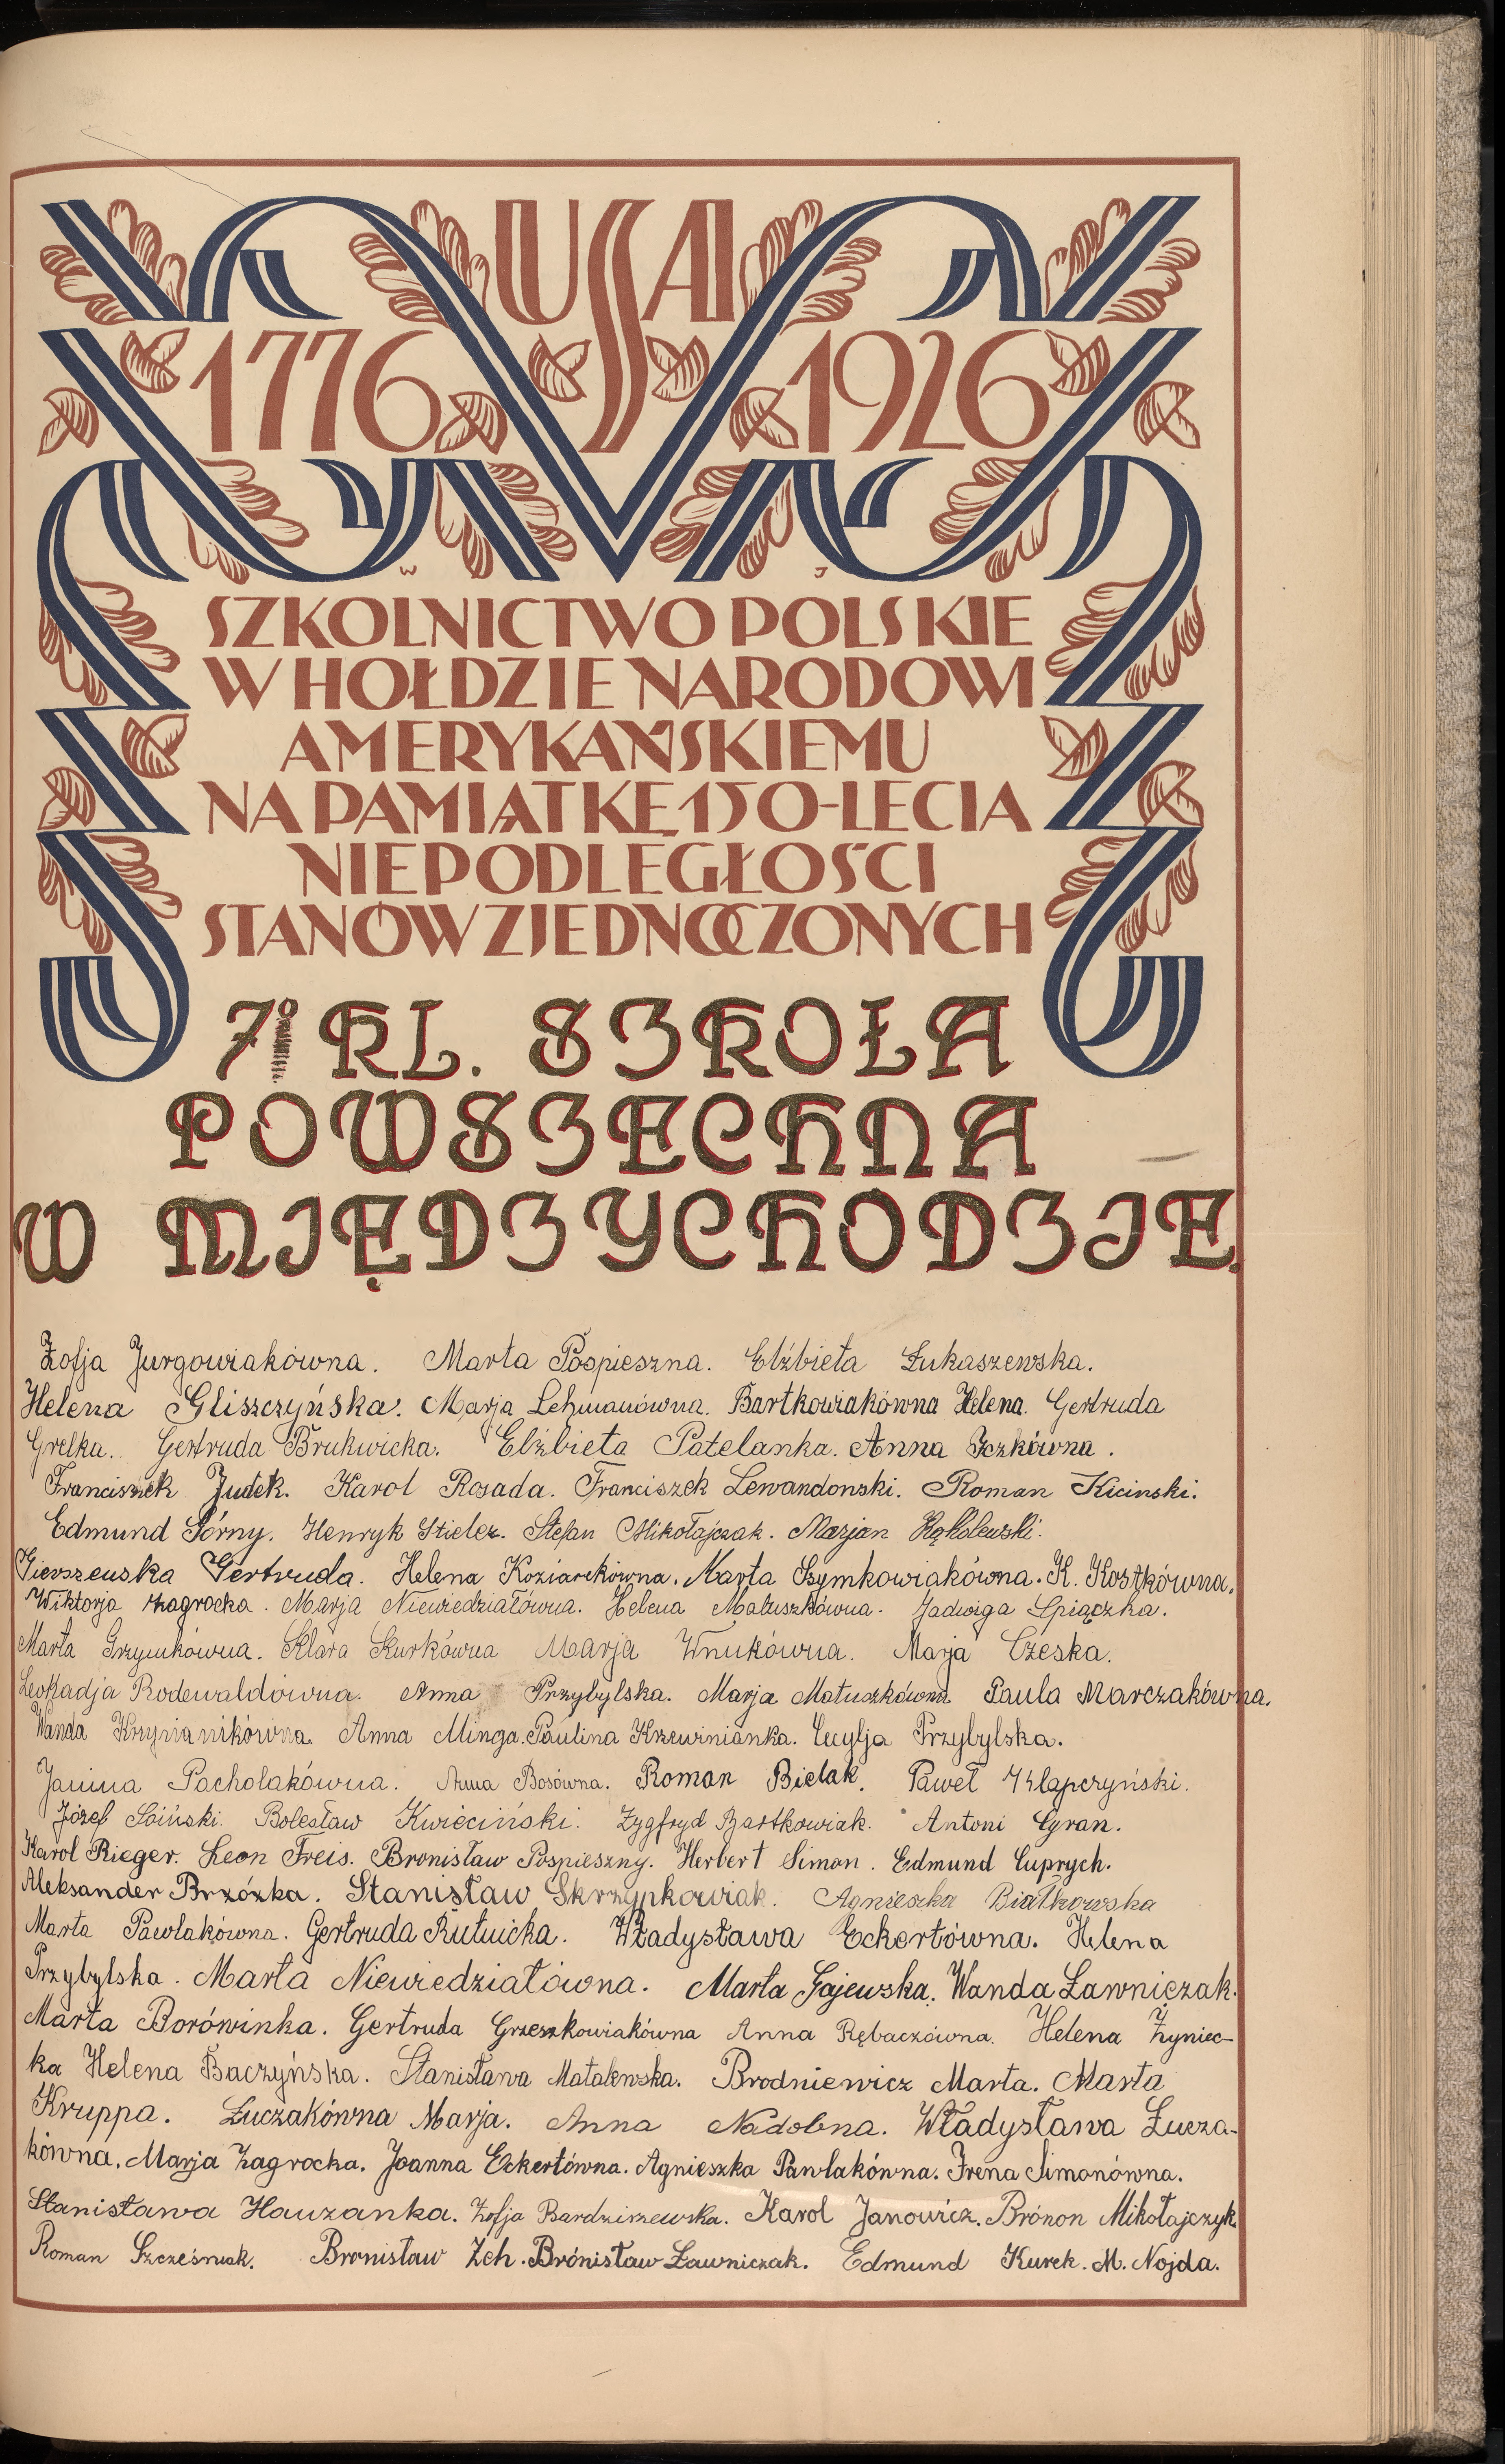 USA
1776 1926
W J
SZKOLNICTWO POLSKIE
W HOŁDZIE NARODOWI
AMERYKAŃSKIEMU
NA PAMIĄTKĘ 150-LECIA
NIEPODLEGŁOŚCI
STANÓW ZJEDNOCZONYCH
7 KL. SZKOŁA
POWSZECHNA
W MIĘDZYCHODZIE.
Zofja Jurgowiakówna. Marta Pospieszna. Elżbieta Łukaszewska.
Helena Gliszczyńska. Marja Lehmanówna. Bartkowiakówna Helena. Gertruda
Grelka. Gertruda Brukwicka. Elżbieta Patelanka. Anna Iczkówna.
Franciszek Judek. Karol Rosada. Franciszek Lewandonski. Roman Kicinski.
Edmund Górny. Henryk Stieler. Stefan Mikołajczak. Marjan Rąkolewski.
Gierszewska Gertruda. Helena Koziarekówna. Marta Szymkowiakówna. K. Kostkówna.
Wiktorja Zagrocka. Marja Niewiedziałówna. Helena Matuszkówna. Jadwiga Spiączka.
Marta Grzymkówna. Klara Kurkówna Marja Wnukówna. Marja Czeska.
Leokadja Rodewaldówna. Anna Przybylska. Marja Matuszkówna Paula Marczakówna.
Wanda Anna Minga. Paulina Krzewinianka. Cecylja Przybylska.
Janina Pacholakówna. Anna Bosówna. Roman Bielak. Paweł Kłapczyński.
Józef Soiński. Bolesław Kwieciński. Zygfryd Bartkowiak. Antoni Cyran.
Karol Rieger. Leon Freis. Bronisław Pospieszny. Herbert Simon. Edmund Cuprych.
Aleksander Brzózka. Stanisław Skrzypkowiak. Agnieszka Białkowska
Marta Pawlakówna. Gertruda Rutnicka. Władysława Eckertówna. Helena
Przybylska. Marta Niewiedziałówna. Marta Gajewska. Wanda Ławniczak.
Marta Borówinka. Gertruda Grzeszkowiakówna Anna Rębaczówna. Helena Żyniec-
ka Helena Baczyńska. Stanisława Matalewska. Brodniewicz Marta. Marta
Kruppa. Łuczakówna Marja. Anna Nadobna. Władysława Łucza-
kówna. Marja Zagrocka. Joanna Eckertówna. Agnieszka Pawlakówna. Irena Simonówna.
Stanisława Hauzanka. Zofja Bardziszewska. Karol Janowicz. Brónon Mikołajczyk.
Roman Szcześniak. Bronisław Zch. Brónisław Ławniczak. Edmund Kurek. M. Nojda.